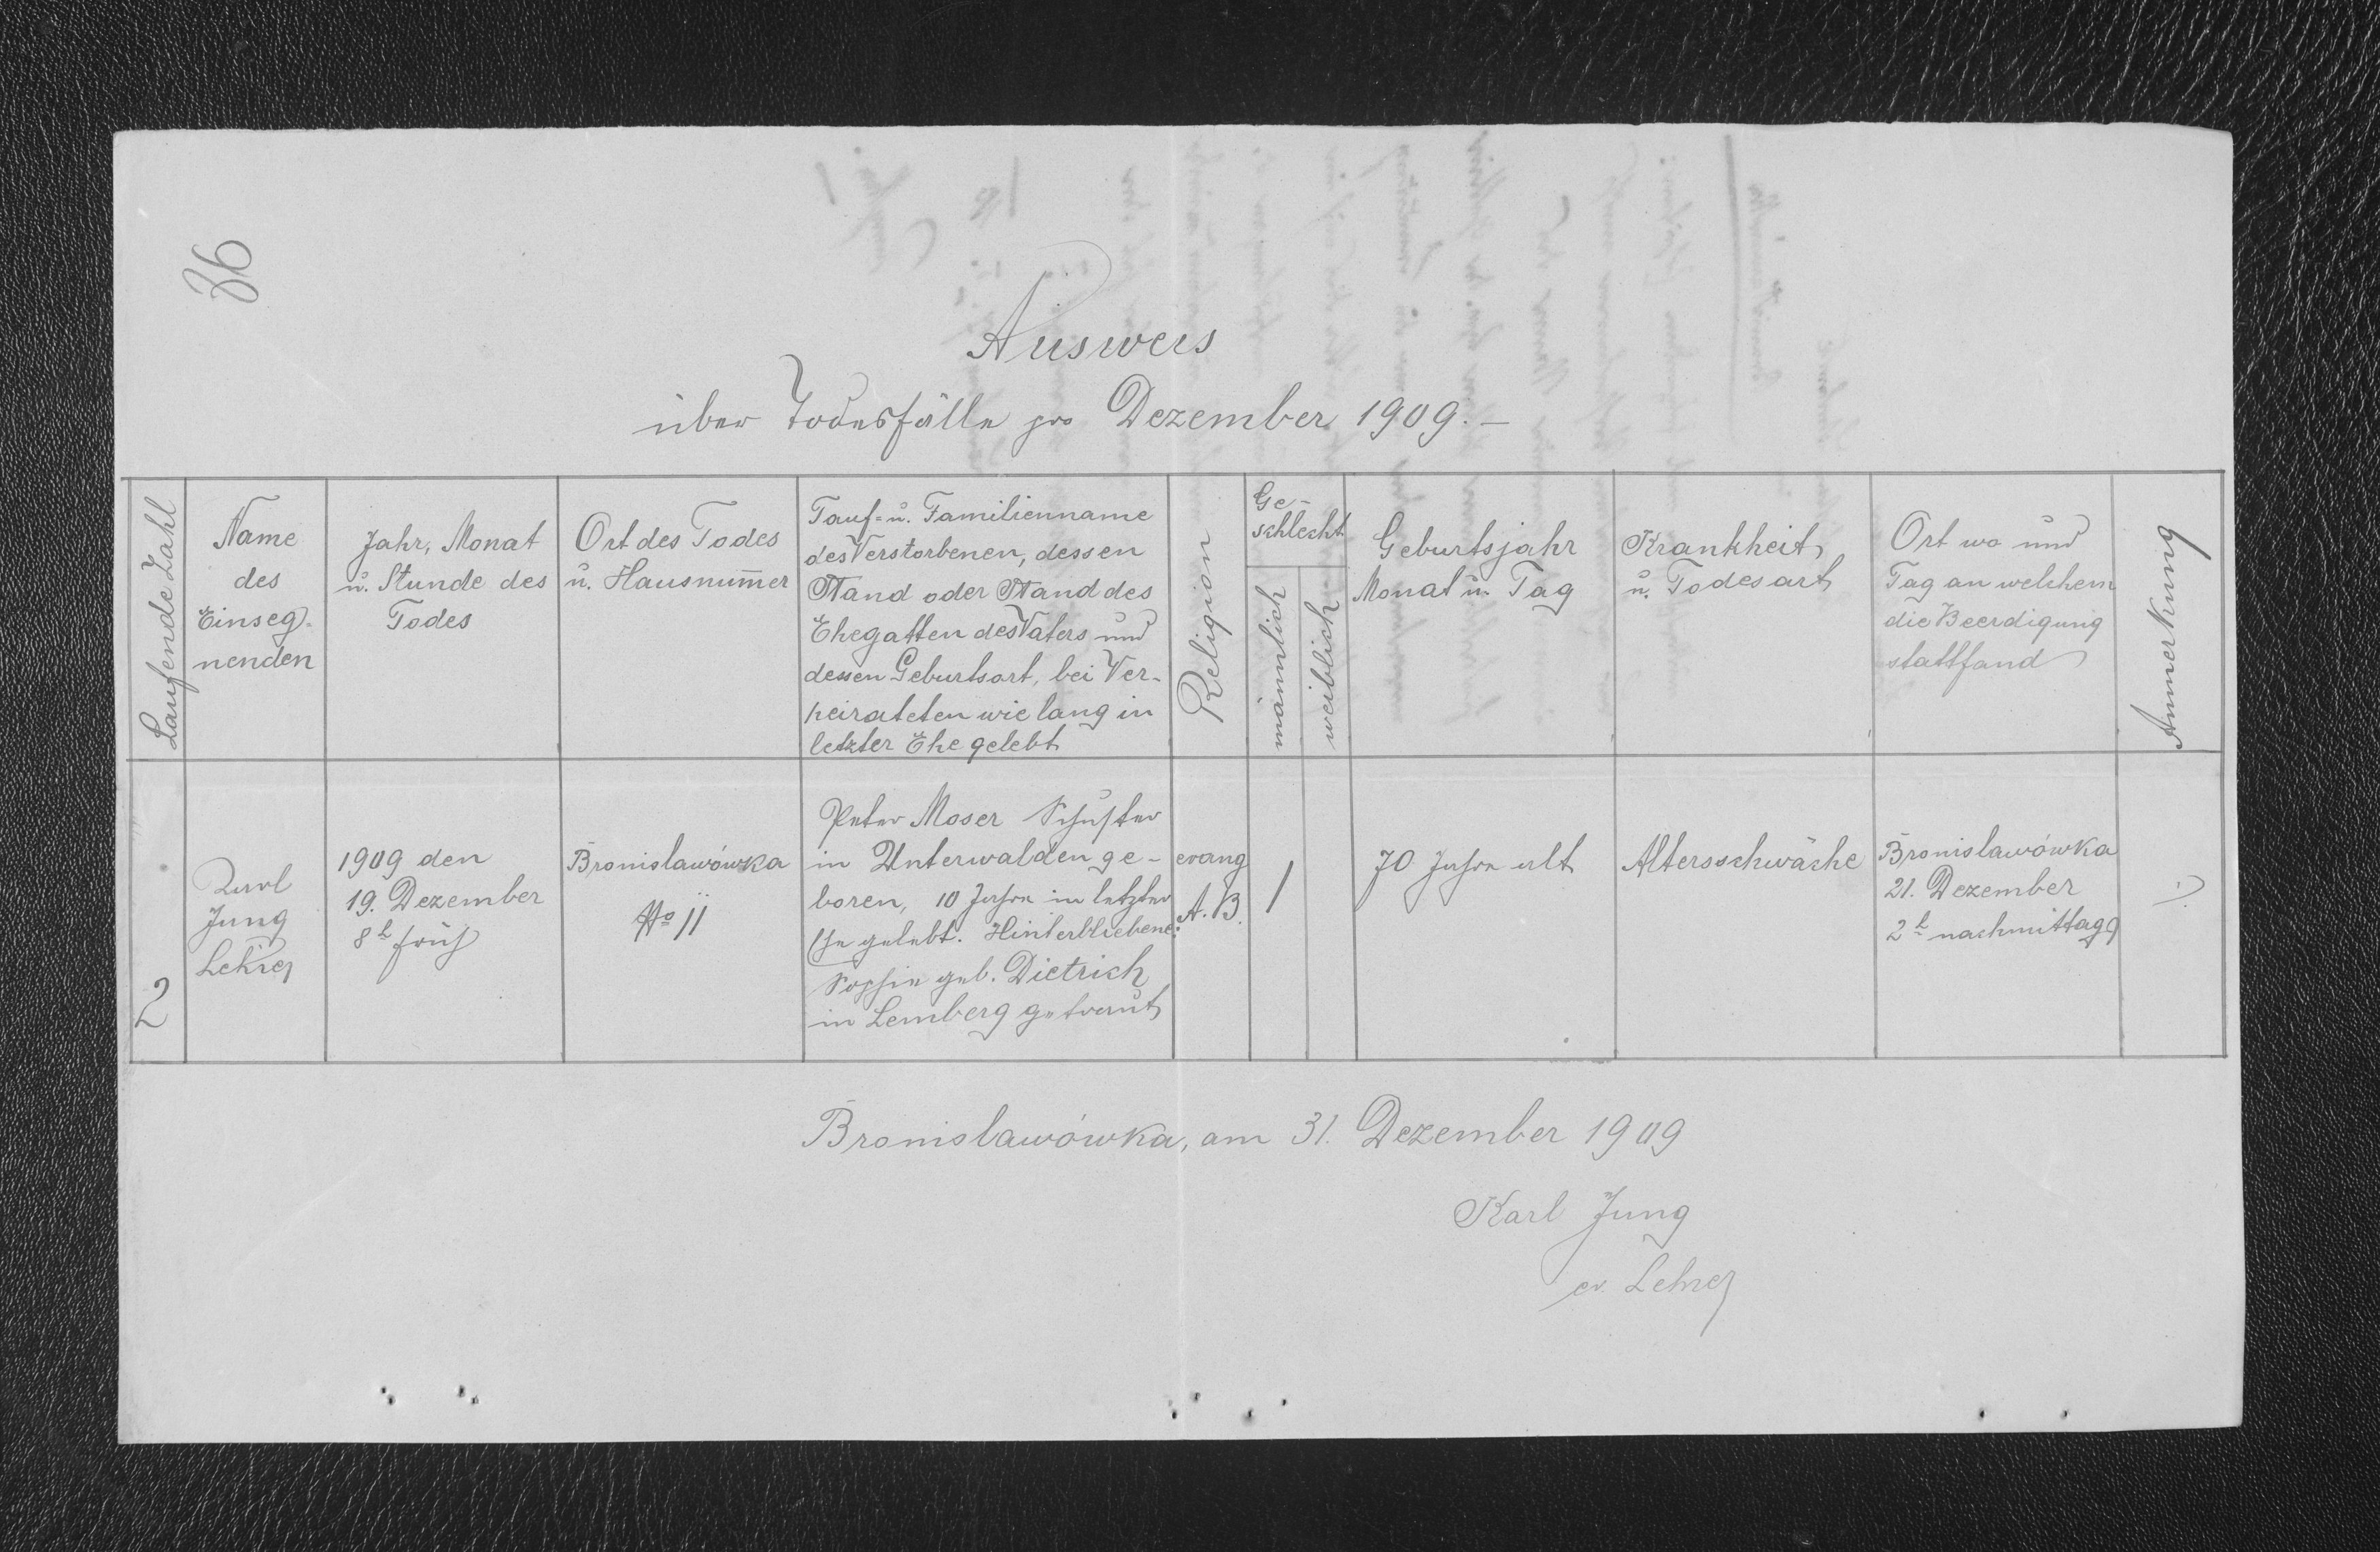 36
Ausweis
über Todesfälle pro Dezember 1909.–
Laufende Zahl
Name
des
Einseg-
nenden
Jahr, Monat
u. Stunde des
Todes
Ort des Todes
u. Hausnum̅er
Tauf- u. Familienname
des Verstorbenen, dessen
Stand oder Stand des
Ehegatten des Vaters und
dessen Geburtsort, bei Ver-
heirateten wie lang in
letzter Ehe gelebt
Religion
Ge-
schlecht
männlich
weiblich
Geburtsjahr
Monat u. Tag
Krankheit
u. Todesart
Ort wo und
Tag an welchem
die Beerdigung
stattfand
Anmerkung
2
Karl
Jung
Lehrer
1909 den
19. Dezember
8h früh
Bronislawówka
No 11
Peter Moser Schuster
in Unterwalden ge-
boren, 10 Jahre in letzter
Ehe gelebt. Hinterbliebene:
Sophie geb. Dietrich
in Lemberg getraut
evang
A. B.
1
70 Jahre alt
Altersschwäche
Bronislawówka
21. Dezember
2h nachmittag
Bronislawówka, am 31. Dezember 1909
Karl Jung
ev. Lehrer